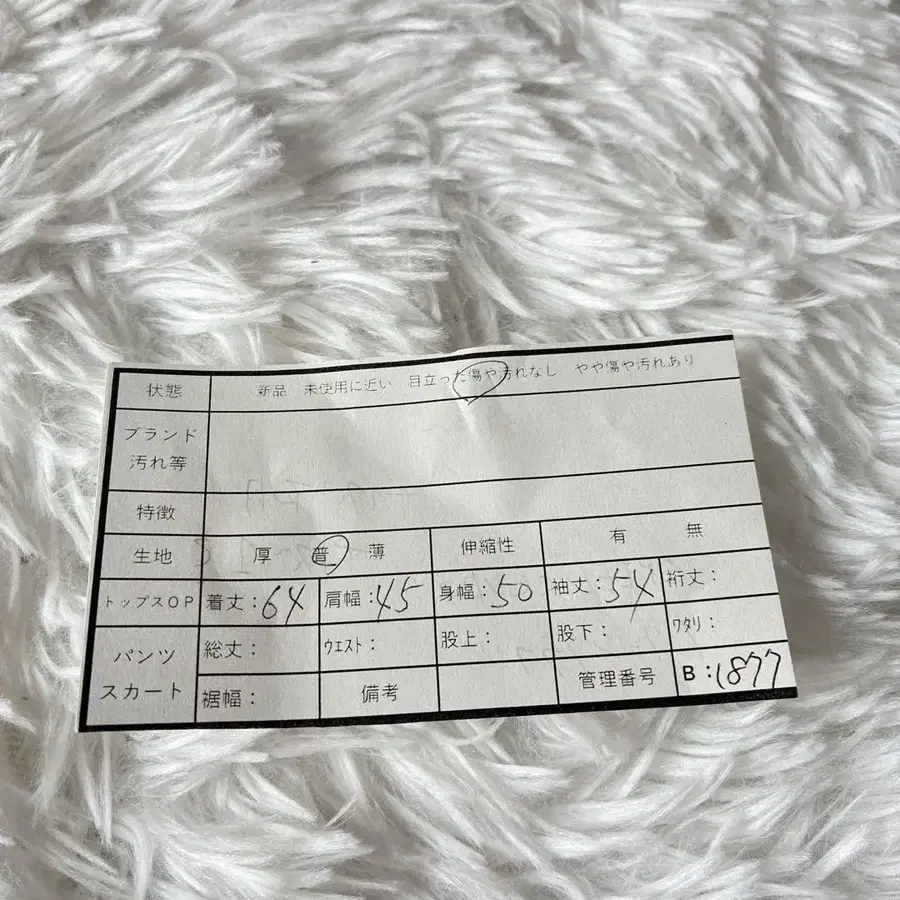 状態 新品 未使用に近い 目立った傷や汚れなし やや傷や汚れあり
ブランド
汚れ等
特徴
生地 厚 普 薄 伸縮性 有 無
トップスOP 着丈:64 肩幅:45 身幅:50 袖丈:54 裄丈:
パンツ
スカート
総丈: ウエスト: 股上: 股下: ワタリ:
裾幅: 備考 管理番号 B:1877